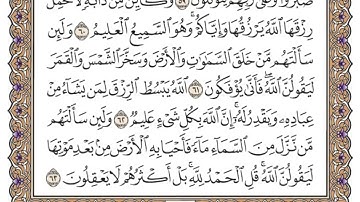 صَبَرُوا۟ وَعَلَىٰ رَبِّهِمْ يَتَوَكَّلُونَ ۝٥٩ وَكَأَيِّن مِّن دَآبَّةٍ لَّا تَحْمِلُ
رِزْقَهَا ٱللَّهُ يَرْزُقُهَا وَإِيَّاكُمْ ۚ وَهُوَ ٱلسَّمِيعُ ٱلْعَلِيمُ ۝٦٠ وَلَئِن
سَأَلْتَهُم مَّنْ خَلَقَ ٱلسَّمَٰوَٰتِ وَٱلْأَرْضَ وَسَخَّرَ ٱلشَّمْسَ وَٱلْقَمَرَ
لَيَقُولُنَّ ٱللَّهُ ۖ فَأَنَّىٰ يُؤْفَكُونَ ۝٦١ ٱللَّهُ يَبْسُطُ ٱلرِّزْقَ لِمَن يَشَآءُ مِنْ
عِبَادِهِۦ وَيَقْدِرُ لَهُۥٓ ۚ إِنَّ ٱللَّهَ بِكُلِّ شَىْءٍ عَلِيمٌ ۝٦٢ وَلَئِن سَأَلْتَهُم
مَّن نَّزَّلَ مِنَ ٱلسَّمَآءِ مَآءً فَأَحْيَا بِهِ ٱلْأَرْضَ مِنۢ بَعْدِ مَوْتِهَا
لَيَقُولُنَّ ٱللَّهُ ۚ قُلِ ٱلْحَمْدُ لِلَّهِ ۚ بَلْ أَكْثَرُهُمْ لَا يَعْقِلُونَ ۝٦٣